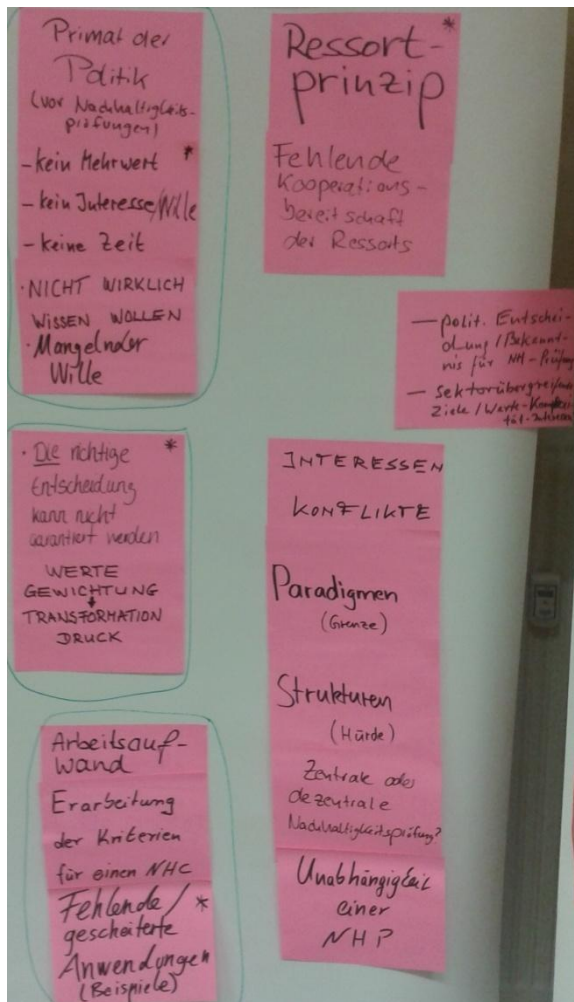 Primat der
Politik
(vor Nachhaltigkeits-
prüfungen)
*
- kein Mehrwert
- kein Interesse/Wille
- keine Zeit
· NICHT WIRKLICH
WISSEN WOLLEN
· Mangelnder
Wille
· Die richtige *
Entscheidung
kann nicht
garantiert werden
WERTE
GEWICHTUNG
TRANSFORMATION
DRUCK
Arbeitsauf-
wand
Erarbeitung
der Kriterien
für einen NHC
Fehlende/ *
gescheiterte
Anwendungen
(Beispiele)
Ressort- *
prinzip
Fehlende
Kooperations-
bereitschaft
der Ressorts
— polit. Entschei-
dung/Bekennt-
nis für NH-Prüfung
— Sektorübergreifende
Ziele/Werte-
INTERESSEN
KONFLIKTE
Paradigmen
(Grenze)
Strukturen
(Hürde)
Zentrale oder
dezentrale
Nachhaltigkeitsprüfung?
Unabhängigkeit
einer
NHP